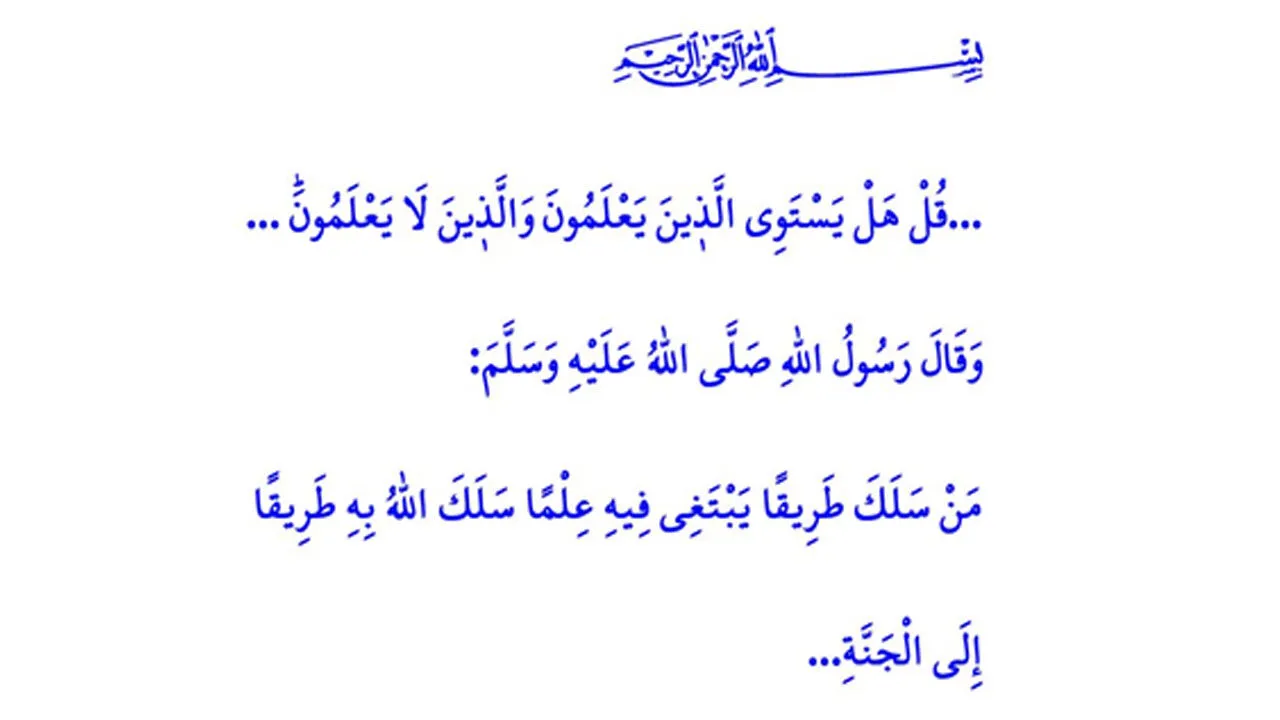 بِسْمِ اللهِ الرَّحْمٰنِ الرَّحِيمِ
...قُلْ هَلْ يَسْتَوِى الَّذ۪ينَ يَعْلَمُونَ وَالَّذ۪ينَ لَا يَعْلَمُونَۜ ...
وَقَالَ رَسُولُ اللهِ صَلَّى اللهُ عَلَيْهِ وَسَلَّمَ:
مَنْ سَلَكَ طَرِيقًا يَبْتَغِى فِيهِ عِلْمًا سَلَكَ اللهُ بِهِ طَرِيقًا
إِلَى الْجَنَّةِ...